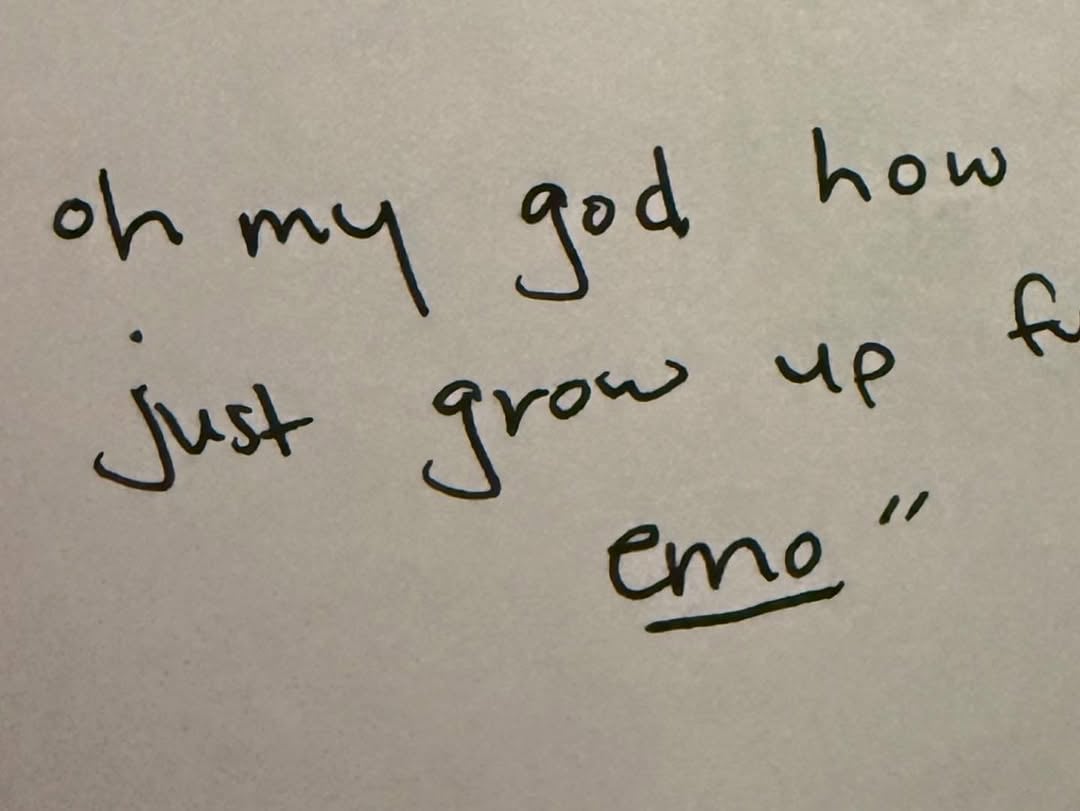 oh my god how
just grow up
emo"